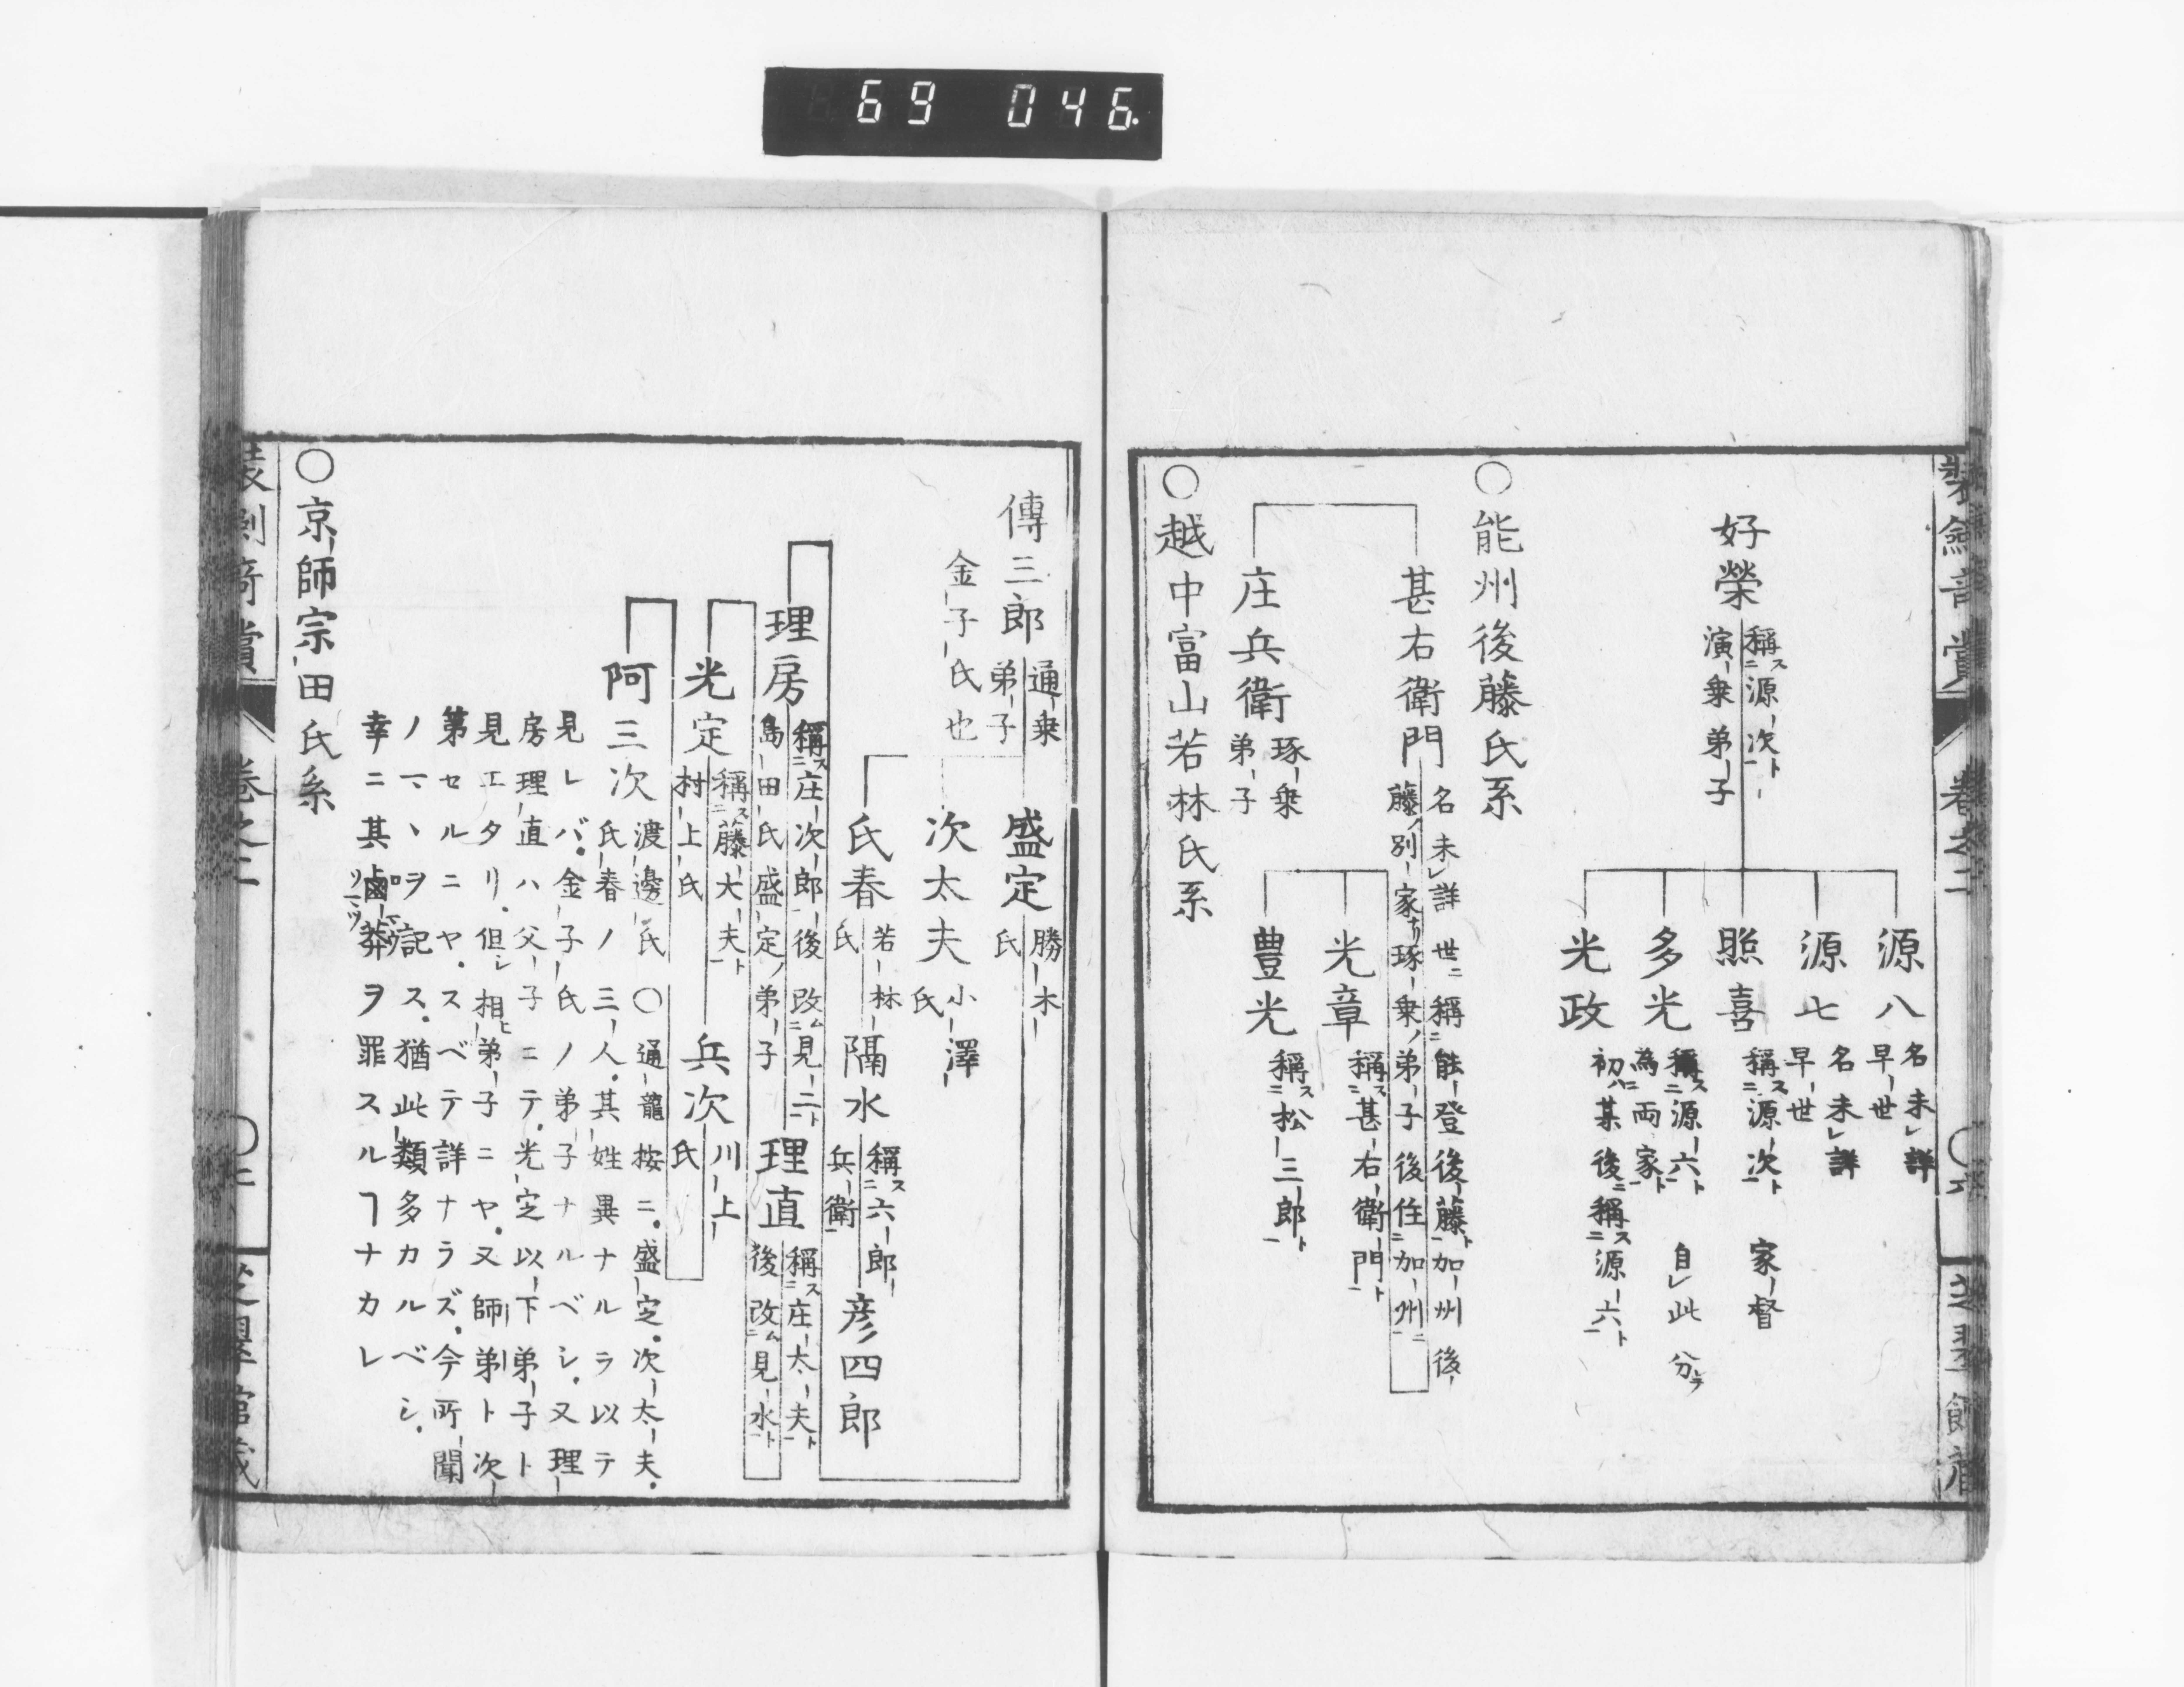 69 046
好榮
稱ス二源次ト一
演乗弟子
源八
名未レ詳
早世
源七
名未レ詳
早世
照喜
稱ス二源次ト一 家督
多光
稱ス二源六ト一 自レ此分テ
為二両家ト一
光政
初ハ某後ニ稱ス二源六ト一
○能州後藤氏系
甚右衛門
名未レ詳世ニ稱二能登後藤ト一加州後
藤ノ別家ナリ琢乗ノ弟子後住二加州ニ一
庄兵衛
琢乗
弟子
光章
稱ス二甚右衛門ト一
豊光
稱ス二松三郎ト一
○越中富山若林氏系
傳三郎
通乗
弟子
金子氏也
盛定
勝木
氏
次太夫
小澤
氏
氏春
若林
氏
隔水
稱ス二六郎
兵衛一
彦四郎
理房
稱ス二庄次郎後改ム二見二ト一
島田氏盛定ノ弟子
理直
稱ス二庄太夫ト一
後改ム二見水ト一
光定
稱ス二藤太夫ト一
村上氏
兵次
川上
氏
阿三次
渡邊氏 ○通龍按ニ盛定次太夫
氏春ノ三人其姓異ナルラ以テ
見レバ金子氏ノ弟子ナルベシ又理
房理直ハ父子ニテ光定以下弟子ト
見エタリ但シ相弟子ニヤ又師弟ト次
第セルニヤスベテ詳ナラズ今所聞
ノマヽヲ記ス猶此類多カルベシ
幸ニ其鹵莽ヲ罪スルヿナカレ
○京師宗田氏系